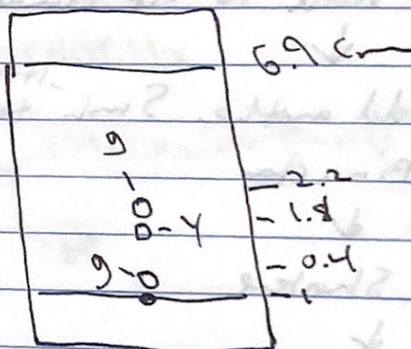 6.9 cm
g
2.2
1.8
Y
0.4
g
1